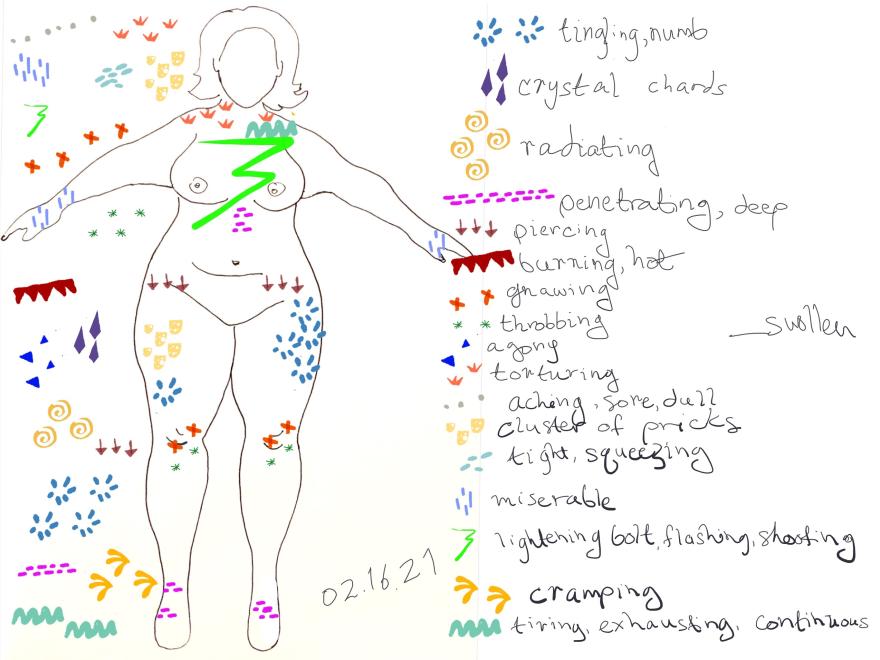 tingling, numb
crystal chards
radiating
penetrating, deep
piercing
burning, hot
gnawing
throbbing
swollen
agony
torturing
aching, sore, dull
cluster of pricks
tight, squeezing
miserable
lightening bolt, flashing, shooting
02.16.21
cramping
tiring, exhausting, continuous